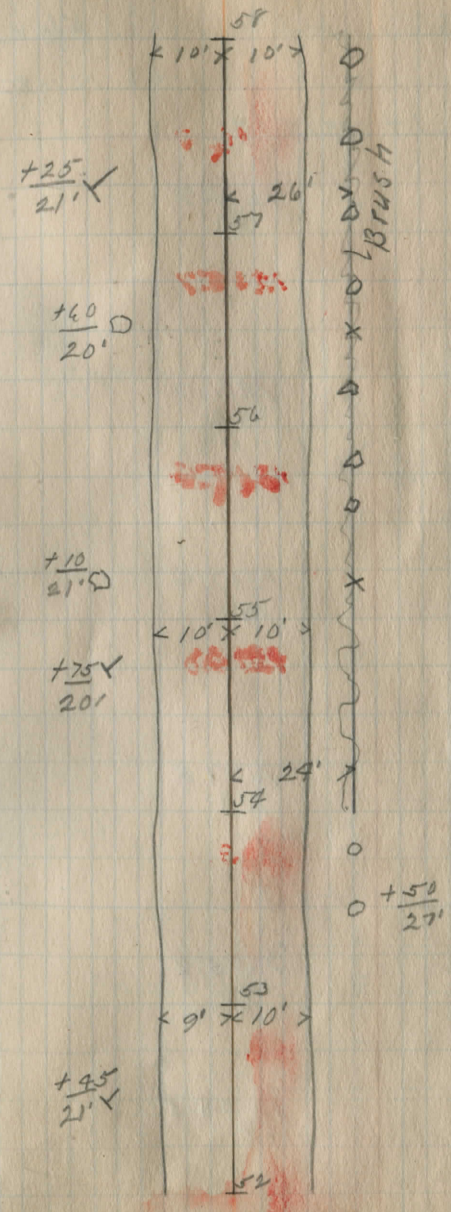 58
10' 10'
+25
21'
26'
57
Brush
+40
20'
56
+10
21'
55
10' 10'
+75
20'
24'
54
+50
27'
53
9' 10'
+45
21'
52